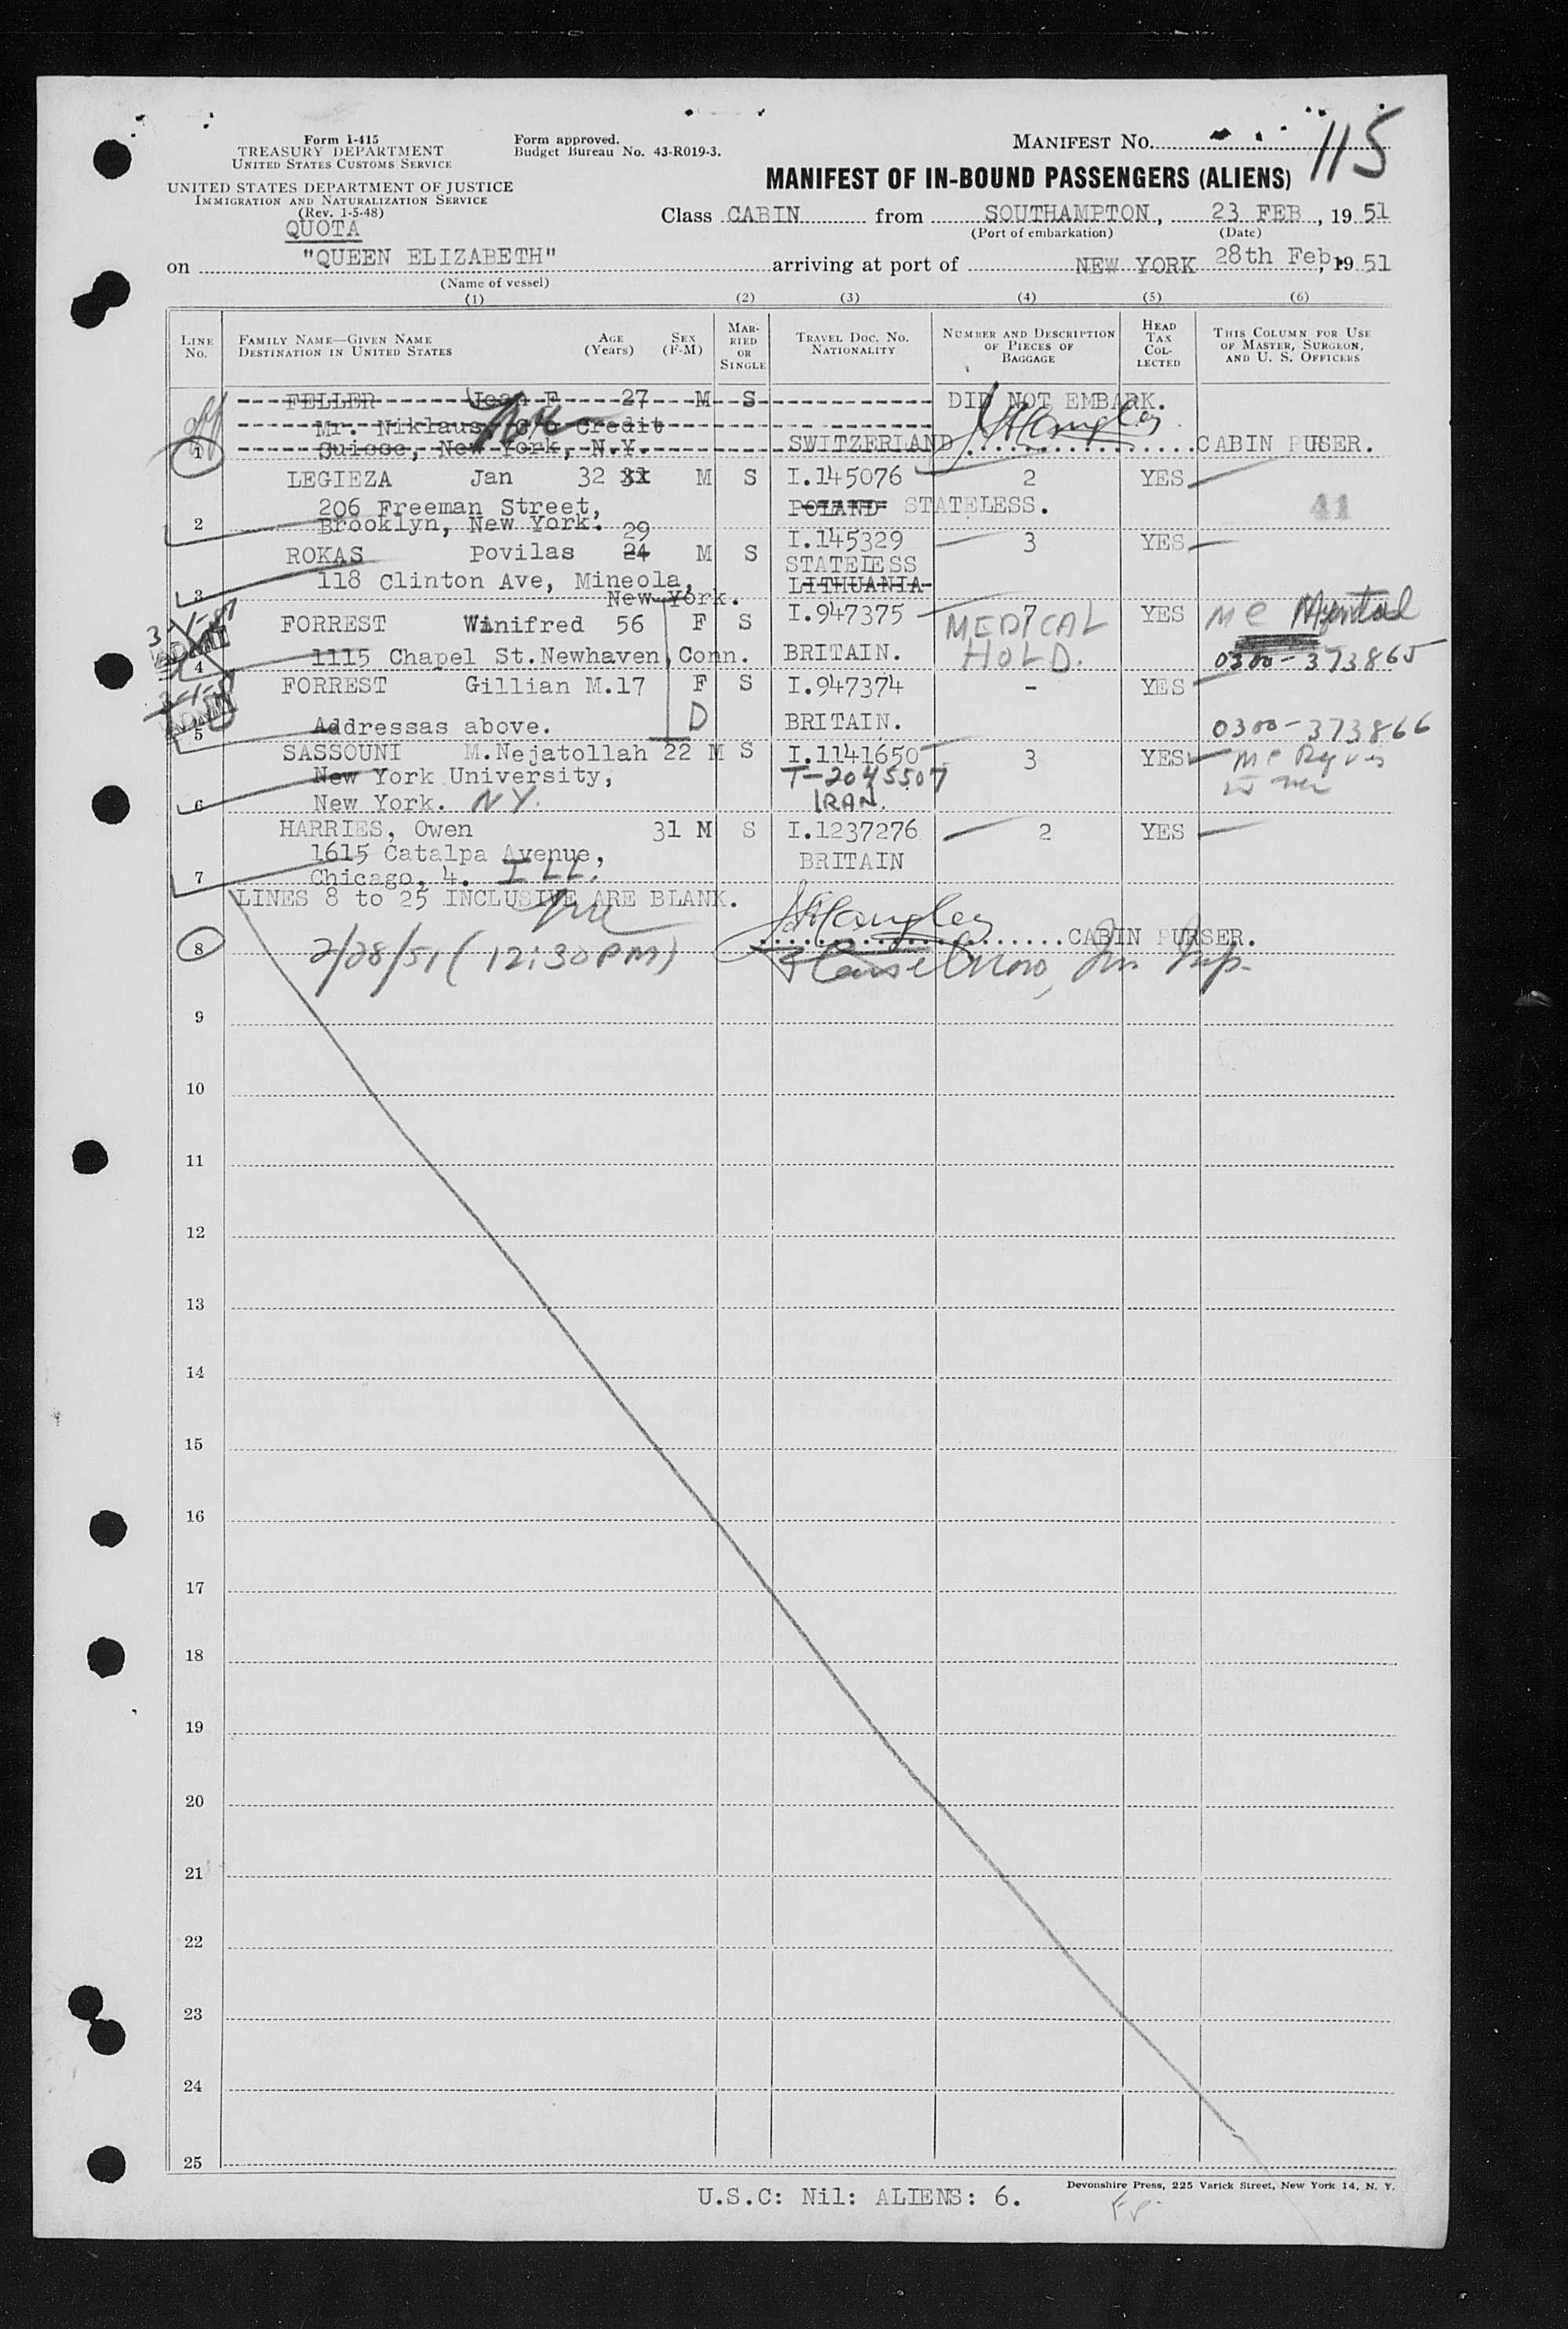 Form I-415
TREASURY DEPARTMENT
UNITED STATES CUSTOMS SERVICE
UNITED STATES DEPARTMENT OF JUSTICE
IMMIGRATION AND NATURALIZATION SERVICE
(Rev. 1-5-48)
QUOTA
Form approved.
Budget Bureau No. 43-R019-3.
MANIFEST NO. 115
MANIFEST OF IN-BOUND PASSENGERS (ALIENS)
Class CABIN from SOUTHAMPTON, 23 FEB, 19 51
(Port of embarkation) (Date)
on "QUEEN ELIZABETH" arriving at port of NEW YORK 28th Feb, 19 51
(Name of vessel)
(1) (2) (3) (4) (5) (6)
LINE No. FAMILY NAME—GIVEN NAME DESTINATION IN UNITED STATES AGE (Years) SEX (F-M) MARRIED OR SINGLE TRAVEL DOC. NO. NATIONALITY NUMBER AND DESCRIPTION OF PIECES OF BAGGAGE HEAD TAX COLLECTED THIS COLUMN FOR USE OF MASTER, SURGEON, AND U. S. OFFICERS
off FELLER Jean F 27 M S DID NOT EMBARK.
Mr. Niklaus, C/O Credit
1 Suisse, New York, N.Y. SWITZERLAND CABIN PUSER.
LEGIEZA Jan 32 31 M S I.145076 2 YES
206 Freeman Street, POLAND STATELESS. 41
2 Brooklyn, New York.
ROKAS Povilas 29 24 M S I.145329 3 YES
118 Clinton Ave, Mineola, STATELESS
3 New York. LITHUANIA
FORREST Winifred 56 F S I.947375 7 YES
MEDICAL HOLD.
4 1115 Chapel St. Newhaven, Conn. BRITAIN. 0300-373865
3-1-51
ADMI
FORREST Gillian M. 17 F S I.947374 - YES
5 Addressas above. D BRITAIN. 0300-373866
SASSOUNI M.Nejatollah 22 M S I.1141650 3 YES
New York University, T-2045507
6 New York. NY. IRAN.
HARRIES, Owen 31 M S I.1237276 2 YES
1615 Catalpa Avenue, BRITAIN
7 Chicago, 4. ILL.
LINES 8 to 25 INCLUSIVE ARE BLANK.
8 2/28/51 (12:30 PM) CABIN PURSER.
9
10
11
12
13
14
15
16
17
18
19
20
21
22
23
24
25
Devonshire Press, 225 Varick Street, New York 14, N. Y.
U.S.C: Nil: ALIENS: 6.